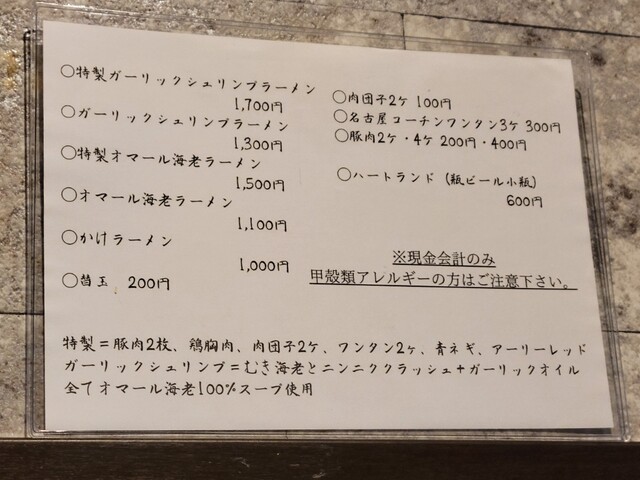 ○特製ガーリックシュリンプラーメン
1,700円
○ガーリックシュリンプラーメン
1,300円
○特製オマール海老ラーメン
1,500円
○オマール海老ラーメン
1,100円
○かけラーメン
1,000円
○替玉 200円
○肉団子2ケ 100円
○名古屋コーチンワンタン3ケ 300円
○豚肉2ケ・4ケ 200円・400円
○ハートランド (瓶ビール小瓶)
600円
※現金会計のみ
甲殻類アレルギーの方はご注意下さい。
特製=豚肉2枚、鶏胸肉、肉団子2ケ、ワンタン2ヶ、青ネギ、アーリーレッド
ガーリックシュリンプ=むき海老とニンニククラッシュ+ガーリックオイル
全てオマール海老100%スープ使用